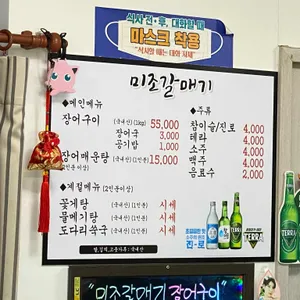 식사 전·후, 대화할 때
마스크 착용
"식사할 때는 대화 자제"
미조갈매기
◆메인메뉴
장어구이 (국내산) (1kg) 55,000
장어국 (국내산) 3,000
공기밥 (국내산) 1,000
장어매운탕 (국내산) (1인분) 15,000
(2인분 이상)
◆계절메뉴 (2인분이상)
꽃게탕 (국내산) (1인분) 시세
물메기탕 (국내산) (1인분) 시세
도다리쑥국 (국내산) (1인분) 시세
쌀, 김치, 고춧가루 : 국내산
◆주류
참이슬/진로 4,000
테라 4,000
소주 4,000
맥주 4,000
음료수 2,000
진-로
TERRA
TERRA
"미조갈매기 장어구이"